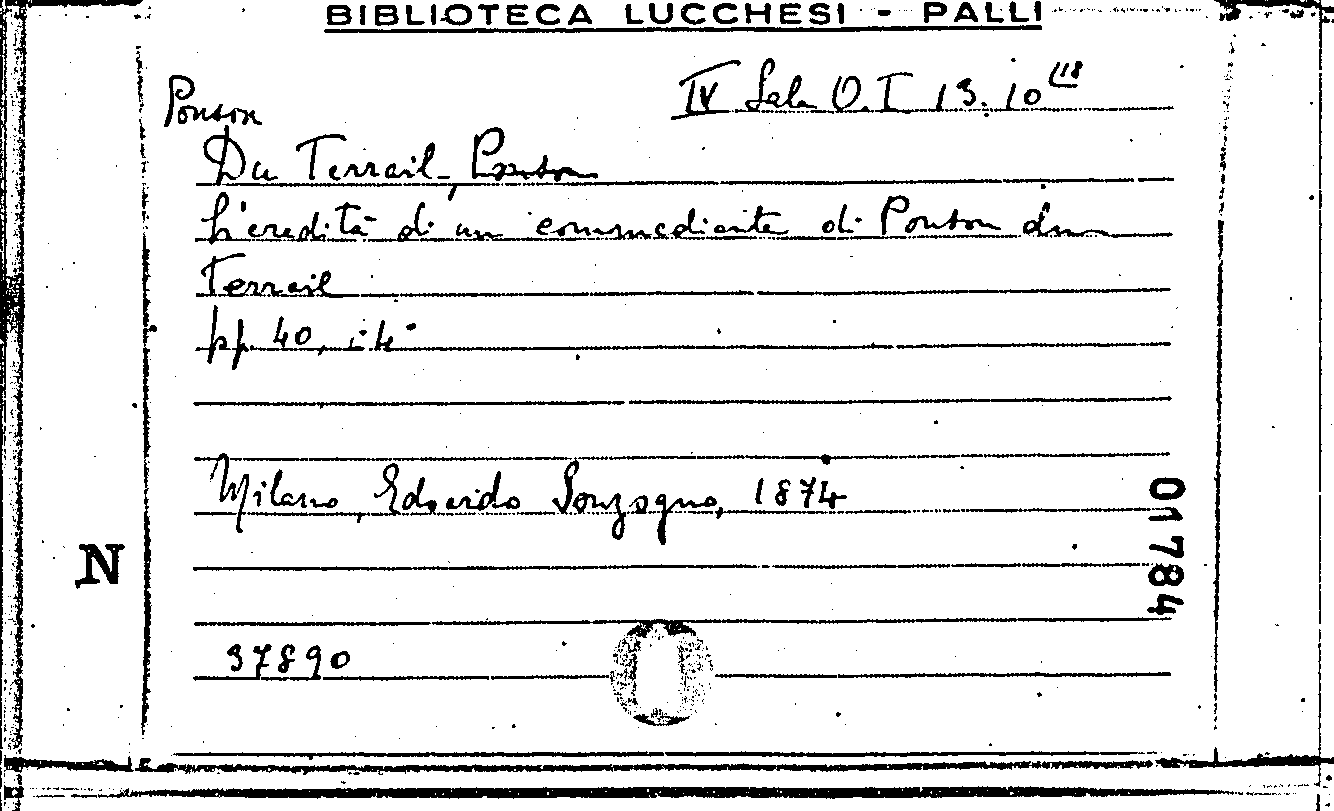 BIBLIOTECA LUCCHESI - PALLI
IV Sala O. I 13. 10 (18
Ponson
Du Terrail, Ponson
L'eredità di un commediante di Ponson du
Terrail
pp. 40, i 4°
Milano, Edoardo Sonzogno, 1874
01784
N
37890